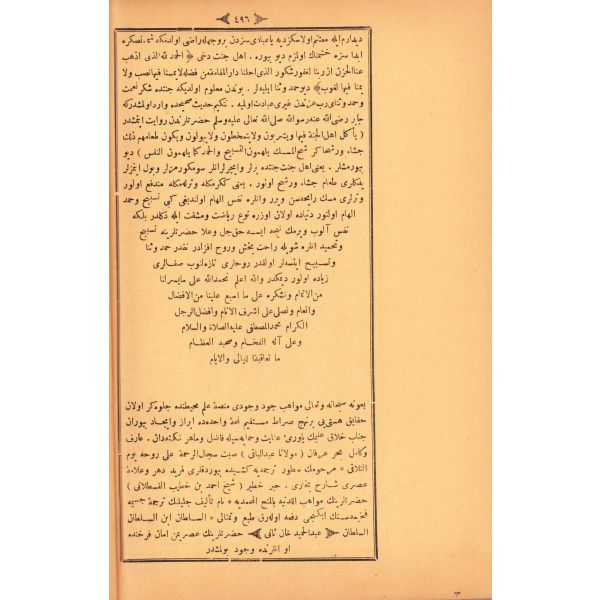 ٤٩٦
ديدارم ايله مغتنم اولاسكز ديه ياعبادى سزدن بروجهله راضى اولدمكه شمدنصكره
ابدا سزه خشمناك اولزم ديو بيوره . اهل جنت دخى ﴿ الحمد لله الذى اذهب
عنا الحزن ان ربنا لغفور شكور الذى احلنا دار المقامة من فضله لا يمسنا فيها نصب ولا
يمسنا فيها لغوب ﴾ ديوحمد وثنا ايليه لر . بوندن معلوم اولديكه جنتده شكر نعمت
وحمد وثناى رب عزتدن غيرى عبادت اوليه . نتكيم حديث صحيحده وارد اولمشدركه
جابر رضى الله عنه رسول الله صلى الله تعالى عليه وسلم حضرتلرندن روايت ايتمشدر
( يأكل اهل الجنة فيها ويشربون ولا يتمخطون ولا يبولون ويكون طعامهم ذلك
جشاء ورشحا كرشح المسك يلهمون التسبيح والحمد كما يلهمون النفس ) ديو
بيورمشلر . يعنى اهل جنت جنتده يرلر وايچرلر انلر سومكورمزلر وبول ايتمزلر
يدكلرى طعام جشاء ورشح اولنور . يعنى ككرمكله وترله مكله مندفع اولور
وترلرى مسك رايحه سن ويرر وانلره نفس الهام اولنديغى كبى تسبيح وحمد
الهام اولنور دنياده اولان اوزره نوع رياضت ومشقت ايله دكلدر بلكه
نفس آلوب ويرمك نيجه ايسه حق جل وعلا حضرتلرينه تسبيح
وتحميد انلره شويله راحت بخش وروح افزادر نقدر حمد وثنا
وتسبيح ايتسه لر اولقدر روحلرى تازه لنوب صفالرى
زياده اولور ديمكدر والله اعلم نحمدالله على ما يسرنا
من الاتمام ونشكره على ما اسبغ علينا من الافضال
وانعام ونصلى على اشرف الانام وافضل الرجل
الكرام محمد المصطفى عليه الصلاة والسلام
وعلى آله الفخام وصحبه العظام
ما تعاقبة الليالى والايام
بعونه سبحانه وتعالى مواهب جود وجودى منصهٔ علم محيطنده جلوه كر اولان
حقايق هستى يى برنهج صراط مستقيم نفحهٔ واحده ده ابراز وايجاد بيوران
جناب خلاق عليمك ياورئ عنايت وحمايه سيله فاضل وماهر نكته دان . عارف
وكامل بحر عرفان ( مولانا عبدالباقى ) صبت سجال الرحمة على روحه يوم
التلاقى * مرحومك سطور ترجمه يه كشيده بيوردقلرى فريد دهر وعلامهٔ
عصرى شارح بخارى . حبر خطير ( شيخ احمد بن خطيب القسطلانى )
حضرتلرينك مواهب اللدنيه بالمنح المحمديه * نام تأليف جليلنك ترجمهٔ جسيمه
ايكنجى دفعه اوله رق طبع وتمثالى * السلطان ابن السلطان
السلطان عبدالحميد خان ثانى حضرتلرينك عصر يمن امان فرخنده
او انلرنده وجود بولمشدر